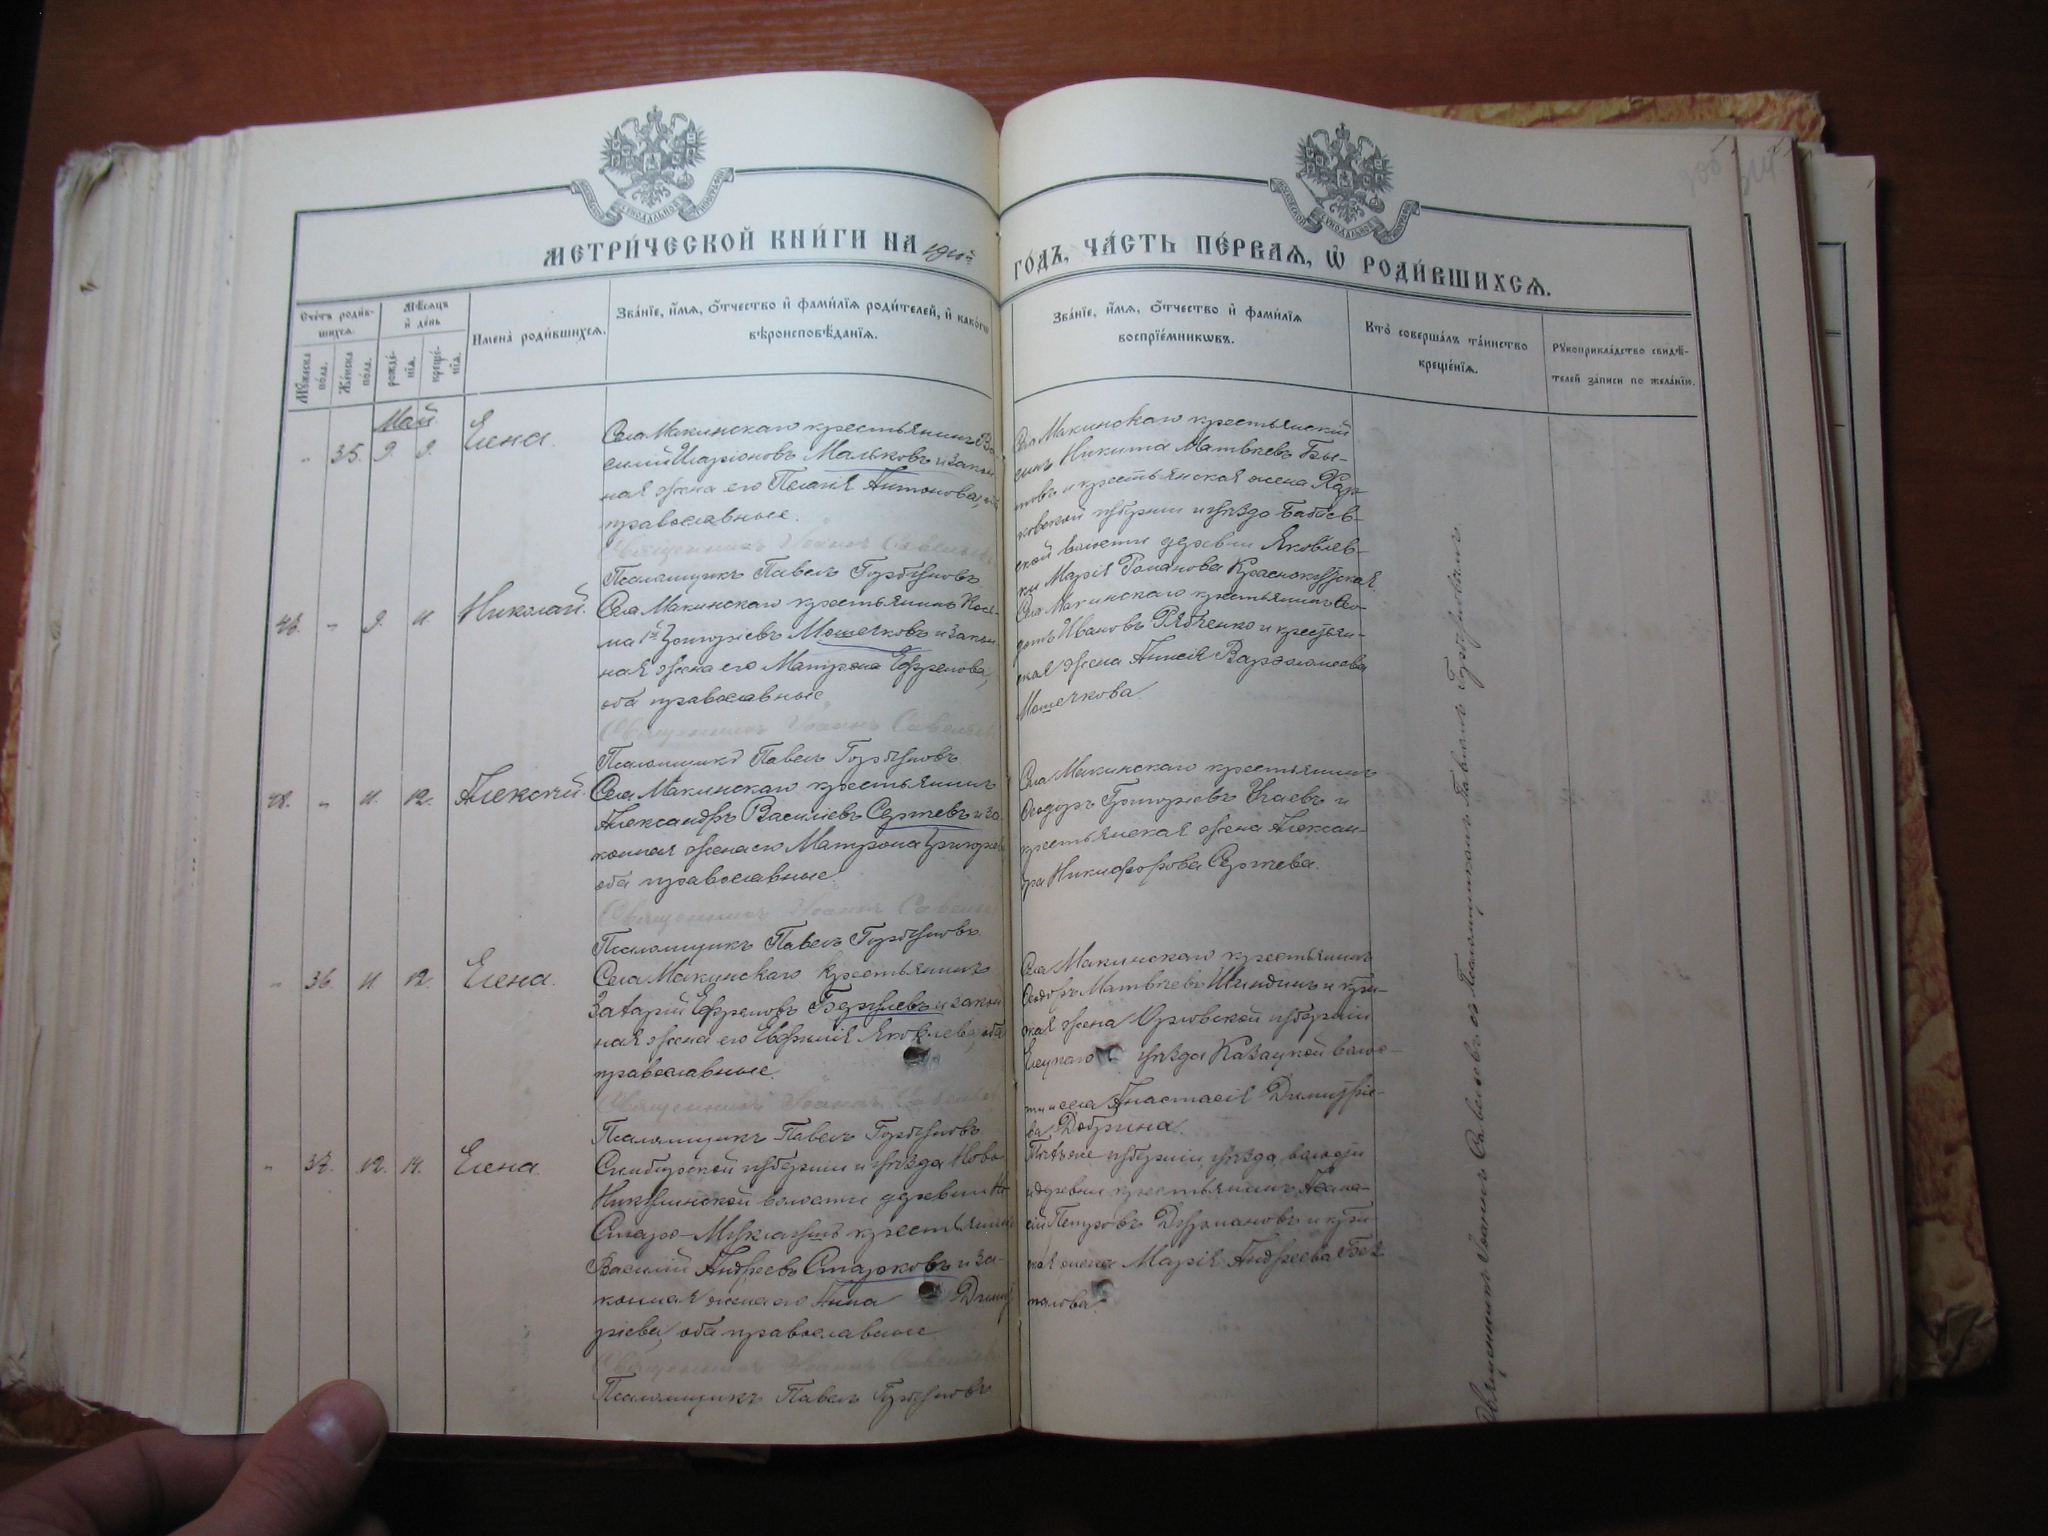 МЕТРИ́ЧЕСКОЙ КНИ́ГИ НА
ГО́ДЪ, ЧА́СТЬ ПЕ́РВАѦ, Ѡ҆ РОДИ́ВШИХСѦ.
Сче́тъ роди́в-
шихсѧ.
Мꙋ́жеска по́ла.
Же́нска по́ла.
Мѣ́сѧцъ
и҆ де́нь
рожде́-
нїѧ.
креще́-
нїѧ.
И҆мена̀ роди́вшихсѧ.
Зва́нїе, и҆́мѧ, ѻ҆́тчество и҆ фами́лїѧ роди́телей, и҆ како́гѡ
вѣроисповѣ́данїѧ.
Зва́нїе, и҆́мѧ, ѻ҆́тчество и҆ фами́лїѧ
воспрїе́мникѡвъ.
Кто̀ соверша́лъ та́инство
креще́нїѧ.
Рꙋкоприкла́дство свидѣ́-
телей за́писи по жела́нїю.
Май.
" 35. 9. 9. Елена.
Села Макинскаго крестьянинъ Ва-
силий Иларіоновъ Мальковъ и закон-
ная жена его Пелагія Антонова, оба
православные.
Священникъ Іоаннъ Савельевъ
Псаломщикъ Павелъ Горбуновъ
Села Макинскаго крестьянский
сынъ Никита Матвѣевъ Бы-
ковъ и крестьянская жена Хар-
ковской губерніи и уѣзда
ской волости деревни Яковлев-
ки Марія Романова Краснокутская
47. " 9. 11. Николай.
Села Макинскаго крестьянинъ Кось-
ма 1й Григоріевъ Мошечковъ и закон-
ная жена его Матрона Ефремова,
оба православные
Священникъ Іоаннъ Савельевъ
Псаломщикъ Павелъ Горбуновъ
Села Макинскаго крестьянинъ Ѳео-
дотъ Ивановъ Рябченко и крестьян-
ская жена Анисія Варѳоломеева
Мошечкова.
48. " 11. 12. Алексій.
Села Макинскаго крестьянинъ
Александръ Василіевъ Сергѣевъ и за-
конная жена его Матрона Григорьева
оба православные
Священникъ Іоаннъ Савельевъ
Псаломщикъ Павелъ Горбуновъ
Села Макинскаго крестьянинъ
Ѳеодоръ Григоріевъ и
крестьянская жена Алексан-
дра Никифорова Сергѣева.
" 36 11. 12. Елена.
Села Макинскаго крестьянинъ
Захарій Ефремовъ и закон-
ная жена его Евфимія Яковлева, оба
православные.
Священникъ Іоаннъ Савельевъ
Псаломщикъ Павелъ Горбуновъ
Села Макинскаго крестьянинъ
Ѳеодоръ Матвѣевъ Шиндинъ и крест-
ская жена Орловской губерніи
Елецкаго уѣзда Казацкой воло-
сти и села Анастасія Димитріе-
ва Добрина.
" 37. 12. 14. Елена.
Симбирской губерніи и уѣзда Ново-
Никулинской волости деревни
крестьянинъ
Василій Андреевъ Старковъ и за-
конная жена его Анна Димит-
ріева, оба православные
Священникъ Іоаннъ Савельевъ
Псаломщикъ Павелъ Горбуновъ
Той же губерніи, уѣзда, волости
и деревни крестьянинъ Аѳана-
сій Петровъ и крест-
кая жена Марія Андреева Без-
палова.
Священникъ Іоаннъ Савельевъ съ Псаломщикомъ Павломъ Горбуновымъ.